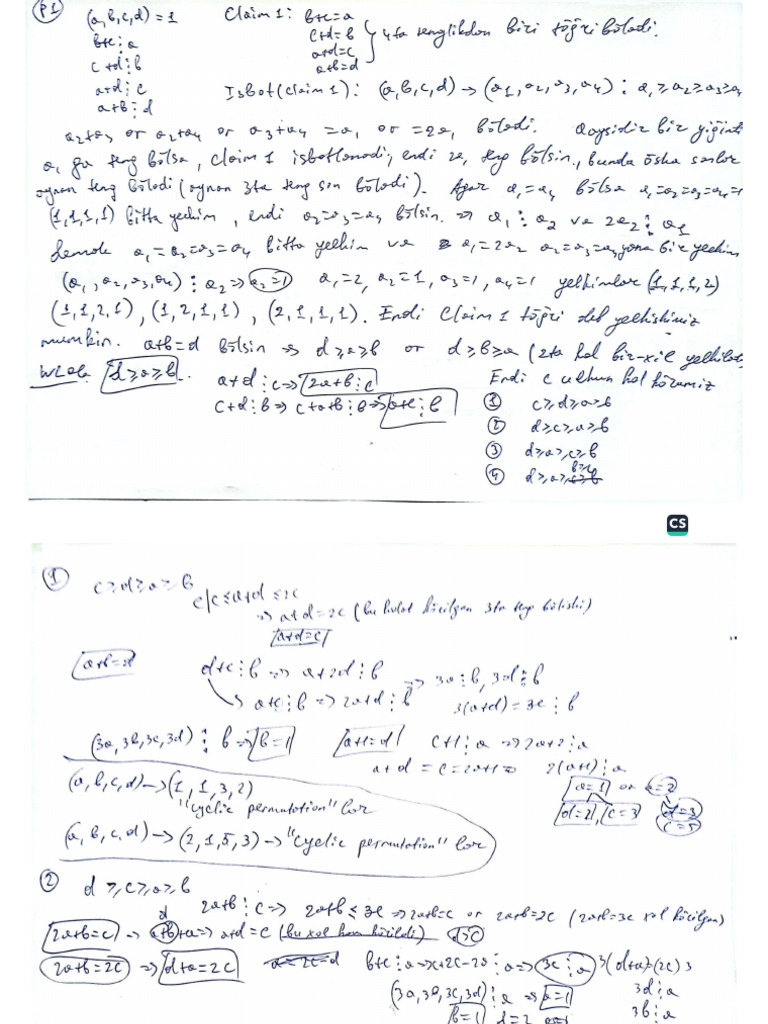 P1 (a,b,c,d)=1 Claim 1: b+c=a
b+c⋮a c+d=b } 4ta tenglikdan biri tōğri bōladi.
c+d⋮b a+d=c
a+d⋮c a+b=d
a+b⋮d Isbot(claim 1): (a,b,c,d) → (a1,a2,a3,a4) : a1≥a2≥a3≥a4
a2+a3 or a2+a4 or a3+a4 = a1 or =2a1 bōladi. Qaysidir bir yiğindi
a1 ga teng bōlsa, claim 1 isbotlanadi, endi 2a1 teng bōlsin, bunda ōsha sonlar
aynan teng bōladi (aynan 3ta teng son bōladi). Agar a1=a4 bōlsa a1=a2=a3=a4=1
(1,1,1,1) bitta yechim, endi a2=a3=a4 bōlsin. ⇒ a1⋮a2 va 2a2⋮a1
Demak a1=a2=a3=a4 bitta yechim va a1=2a2 a2=a3=a4 yana bir yechim
(a1,a2,a3,a4)⋮a2 ⇒ a2=1 a1=2, a2=1, a3=1, a4=1 yechimlar (1,1,1,2)
(1,1,2,1), (1,2,1,1), (2,1,1,1). Endi Claim 1 tōğri deb yechishimiz
mumkin. a+b=d bōlsin ⇒ d≥a≥b or d≥b≥a (2ta hol bir-xil yechiladi)
WLOG d≥a≥b. a+d⋮c ⇒ 2a+b⋮c Endi c uchun hol kōramiz
c+d⋮b ⇒ c+a+b⋮b ⇒ a+c⋮b
① c≥d≥a≥b
② d≥c≥a≥b
③ d≥a≥c≥b
④ d≥a≥b≥c
CS
① c≥d≥a≥b
c|c≤a+d≤2c
⇒ a+d=2c (bu holat kōrilgan 3ta teng bōlishi)
a+d=c
a+b=d d+c⋮b ⇒ a+2d⋮b ⇒ 3a⋮b, 3d⋮b
a+c⋮b ⇒ 2a+d⋮b 3(a+d)=3c⋮b
(3a,3b,3c,3d)⋮b ⇒ b=1 a+1=d c+1⋮a ⇒ 2a+2⋮a
a+d=c=2a+1 ⇒ 2(a+1)⋮a
(a,b,c,d) → (1,1,3,2) a=1 or a=2
"cyclic permutation" lar d=2, c=3 d=3
(a,b,c,d) → (2,1,5,3) → "cyclic permutation" lar c=5
② d≥c≥a≥b
2a+b⋮c ⇒ 2a+b≤3c ⇒ 2a+b=c or 2a+b=2c (2a+b=3c xol kōrilgan)
2a+b=c ⇒ a+b+a ⇒ a+d=c (bu xol ham kōrildi)
2a+b=2c ⇒ d+a=2c b+c⋮a ⇒ c+2c-2a⋮a ⇒ 3c⋮a 3(d+a)=(2c)3
(3a,3b,3c,3d)⋮a ⇒ a=1 3d⋮a
b=1 d=2 3b⋮a